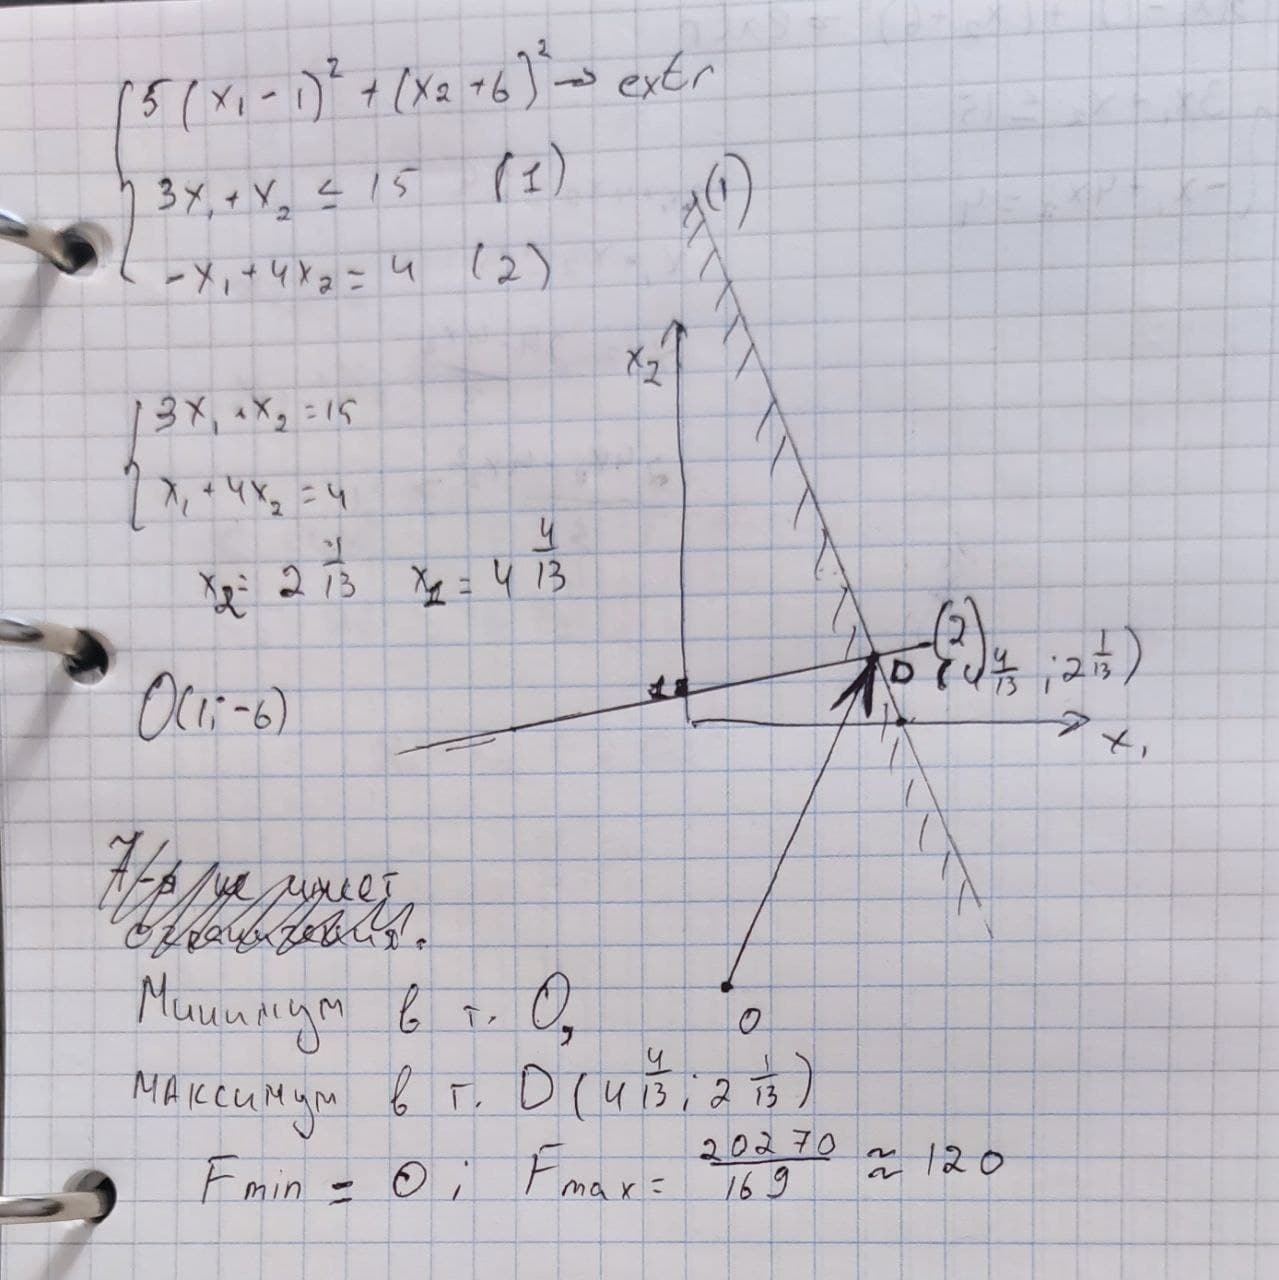 5(x₁-1)² + (x₂+6)² → extr
3x₁+x₂ ≤ 15 (1)
-x₁+4x₂ = 4 (2)
(1)
x₂
3x₁+x₂ = 15
x₁+4x₂ = 4
x₂ = 2 1/13 x₁ = 4 4/13
(2)
D (4 4/13 ; 2 1/13)
O(1; -6)
x₁
O
Минимум в т. O,
максимум в т. D(4 4/13 ; 2 1/13)
Fmin = 0 ; Fmax = 20270/169 ≈ 120